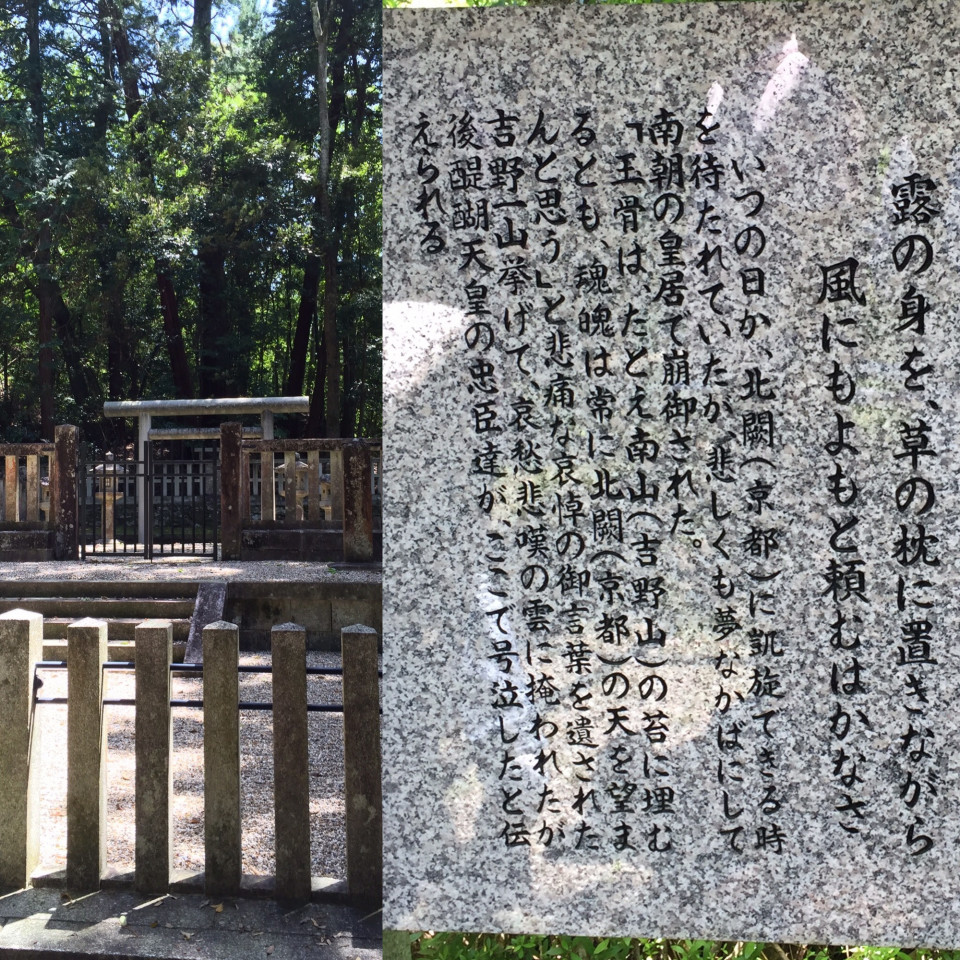 露の身を、草の枕に置きながら
風にもよもと頼むはかなさ
いつの日か、北闕(京都)に凱旋できる時
を待たれていたが、悲しくも夢なかばにして
南朝の皇居で崩御された。
「王骨は、たとえ南山(吉野山)の苔に埋む
るとも、魂魄は常に北闕(京都)の天を望ま
んと思う」と悲痛な哀悼の御言葉を遺された
吉野一山挙げて、哀愁悲嘆の雲に掩われたが
後醍醐天皇の忠臣達が、ここで号泣したと伝
えられる